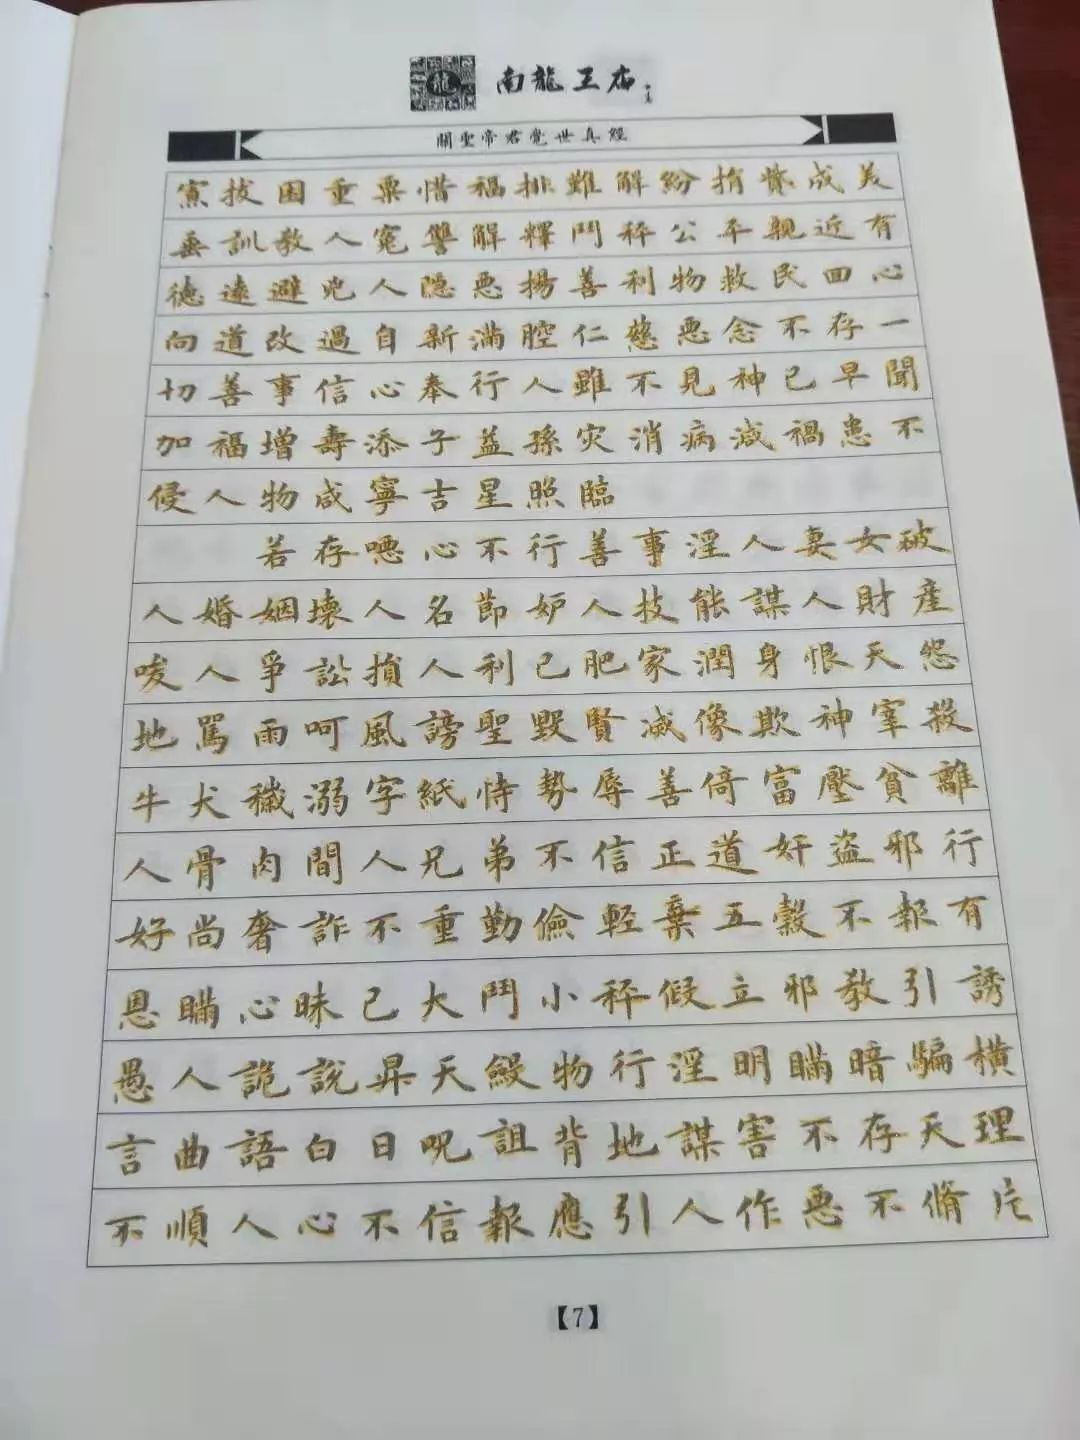 龍 南龍王庙
關聖帝君覺世真經
窮拔困重粟惜福排難解紛捐貲成美
垂訓教人寃讐解釋鬥秤公平親近有
德遠避兇人隱惡揚善利物救民回心
向道改過自新滿腔仁慈惡念不存一
切善事信心奉行人雖不見神已早聞
加福增壽添子益孫灾消病減禍患不
侵人物咸寧吉星照臨
若存噁心不行善事淫人妻女破
人婚姻壞人名節妒人技能謀人財產
唆人爭訟損人利己肥家潤身恨天怨
地罵雨呵風謗聖毀賢滅像欺神宰殺
牛犬穢溺字紙恃勢辱善倚富壓貧離
人骨肉間人兄弟不信正道奸盜邪行
好尚奢詐不重勤儉輕棄五穀不報有
恩瞞心昧己大鬥小秤假立邪教引誘
愚人詭說昇天斂物行淫明瞞暗騙橫
言曲語白日呪詛背地謀害不存天理
不順人心不信報應引人作惡不脩片
【7】